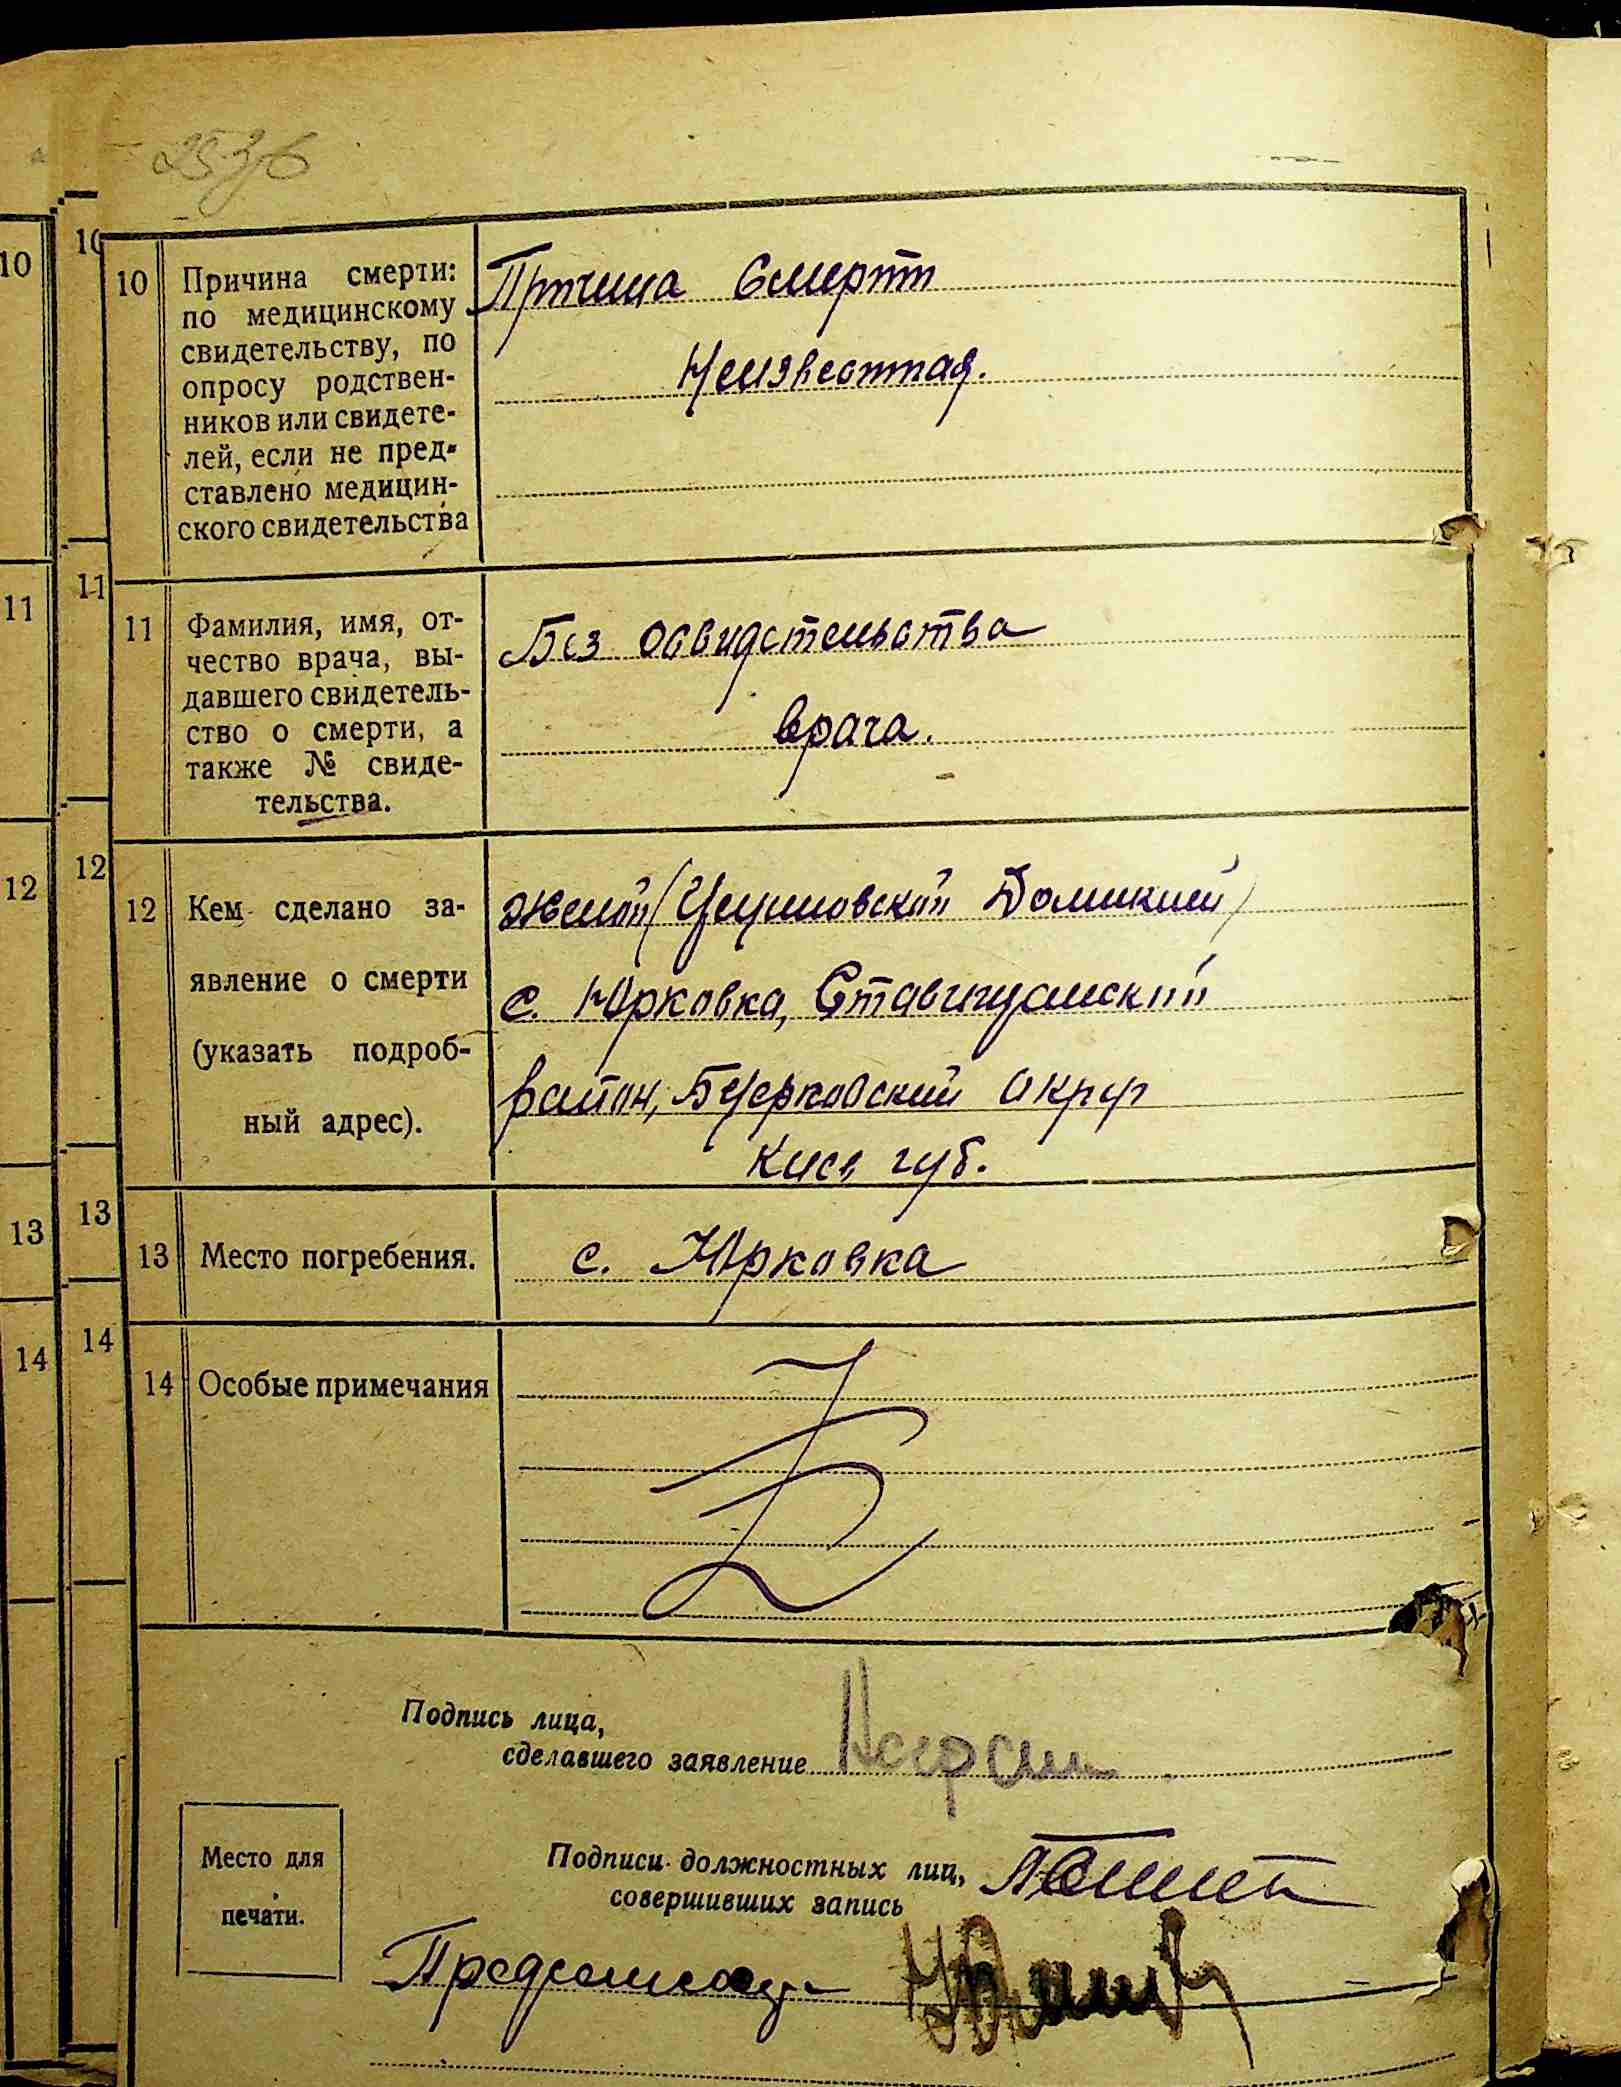 10
10
10
Причина смерти:
по медицинскому
свидетельству, по
опросу родствен-
ников или свидете-
лей, если не пред-
ставлено медицин-
ского свидетельства
Причина Смерти
Неизвестная.
11
11
11
Фамилия, имя, от-
чество врача, вы-
давшего свидетель-
ство о смерти, а
также № свиде-
тельства.
Без освидетельства
врача.
12
12
12
Кем сделано за-
явление о смерти
(указать подроб-
ный адрес).
женой
с. Юрковка, Ставищанский
район, Бцерковский округ
Киев губ.
13
13
13
Место погребения.
с. Юрковка
14
14
14
Особые примечания
Подпись лица,
сделавшего заявление
Место для
печати.
Подписи должностных лиц,
совершивших запись